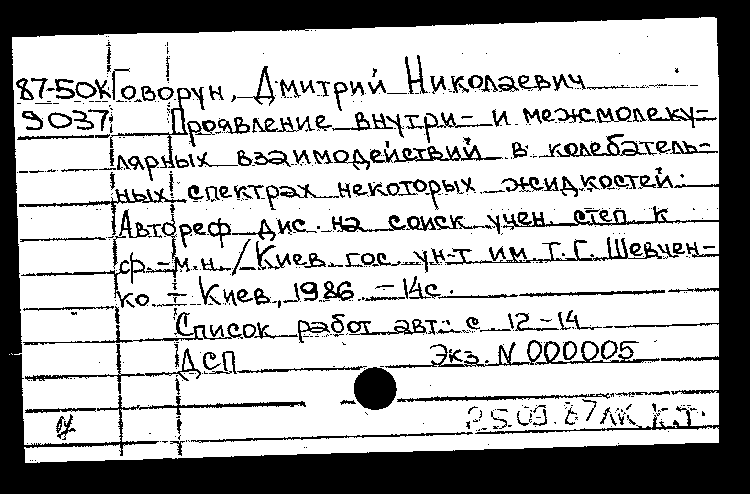 87-50К Говорун, Дмитрий Николаевич
9037 Проявление внутри- и межмолеку-
лярных взаимодействий в колебатель-
ных спектрах некоторых жидкостей:
Автореф дис. на соиск учен. степ к
ф.-м.н. /Киев. гос. ун-т им Т.Г. Шевчен-
ко - Киев, 1986 - 14с.
Список работ авт.: с 12-14
ДСП Экз. N 000005
25.09.87 ЛК К.Т.